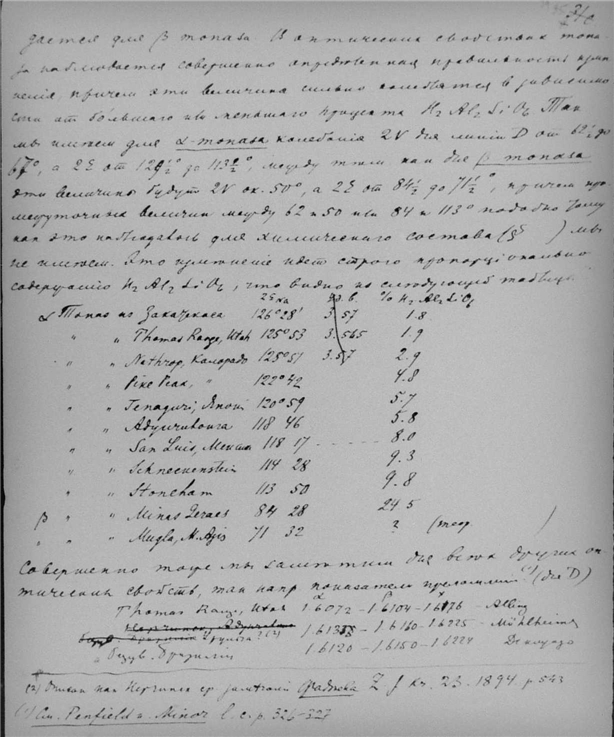 дается для β топаза. В оптических свойствах топа-
за наблюдается совершенно определенная правильность
нения, причем эти величины сильно колеблятся в зависимо
сти от большаго или меньшаго процента H₂Al₂SiO₆ Так
мы имеем для α-топаза колебания 2V для линии D от 62½ до
67°, а 2E от до 113½°, между тем как для β топаза
эти величины будут 2V ок. 50°, а 2E от 84½ до 71½°, причем про
межуточных величин между 62 и 50 или 84 и 113° подобно тому
как это наблюдалось для химического состава мы
не имеем. Это изменение идет строго пропорционально
содержанию H₂Al₂SiO₆, что видно из следующей таблицы.
% H₂Al₂SiO₆
α Топаз из 126°28' 3.57 1.8
" " Thomas Range, Utah 125°53 3.565 1.9
" " Nathrop, Колорадо 125°51 3.57 2.9
" " Pike Peak, " 122°42 4.8
" " 120°59 5.7
" " Адунчилонга 118 46 5.8
" " San Luis, 118 17 ..... 8.0
" " Schneckenstein 114 28 9.3
" " Stoneham 113 50 9.8
β " " Minas Geraes 84 28 24 5
" " Mugla, М. Азия 71 32 ? (теор )
Совершенно тоже мы заметим для всех других оп
тических свойств, так напр показатели преломления (для D)
Thomas Range, Utah 1.6072 – 1.6104 – 1.6176 – Alling
– 1.6160 – 1.6225 – Mühlheims
" Бразилии 1.6120 – 1.6150 – 1.6224
Z f Kr. 23. 1894. p 543
См. Penfield u. Minor l. c. p. 326–327